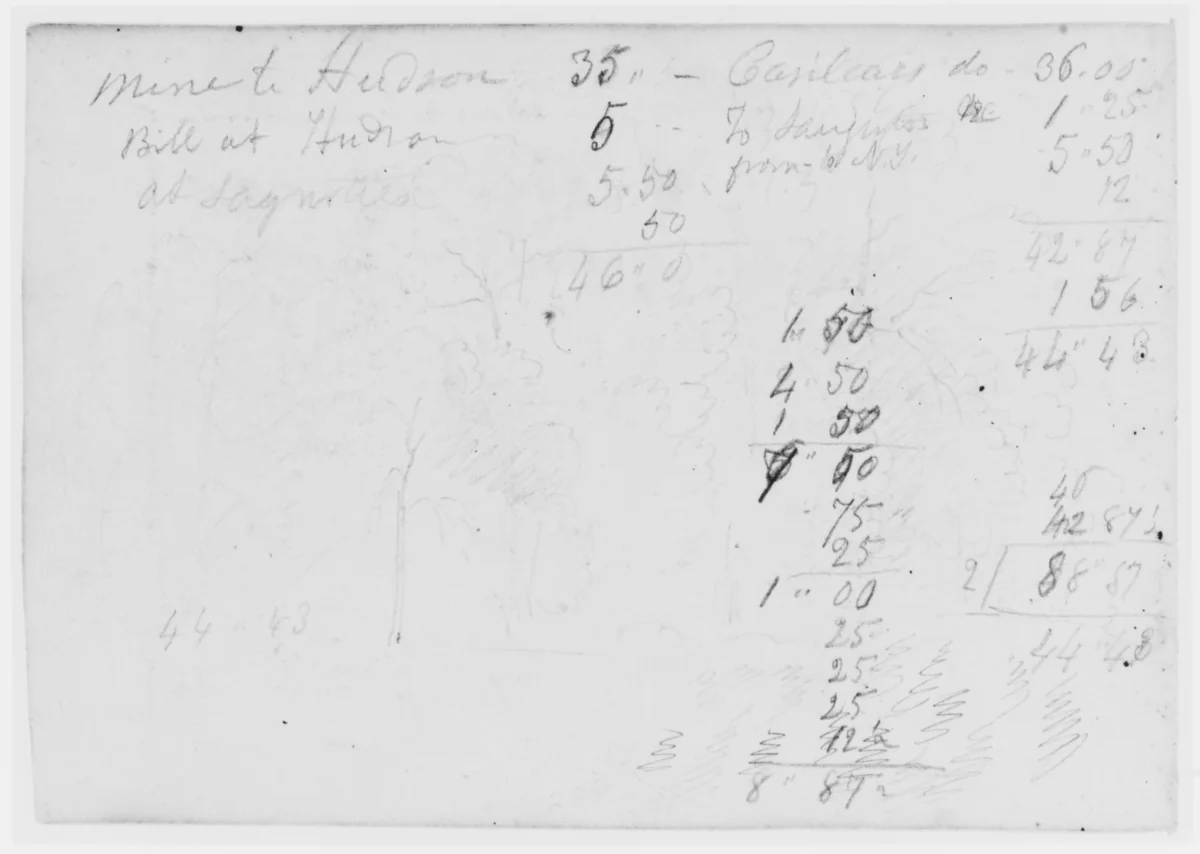 Mine to Hudson 35 " — Casilears do - 36.00
Bill at Hudson 5 -- To Saugerties 1 " 25
at Saugerties 5.50 from - to N.Y. 5 " 50
50 12
46 " 0 42 " 87
1 56
44 " 43
1 " 50
4 " 50
1 50
" 50
75 "
25
1 " 00
25
25
25
12½
8 " 87
42 87½
2 88 " 87
44 " 43
44 " 43